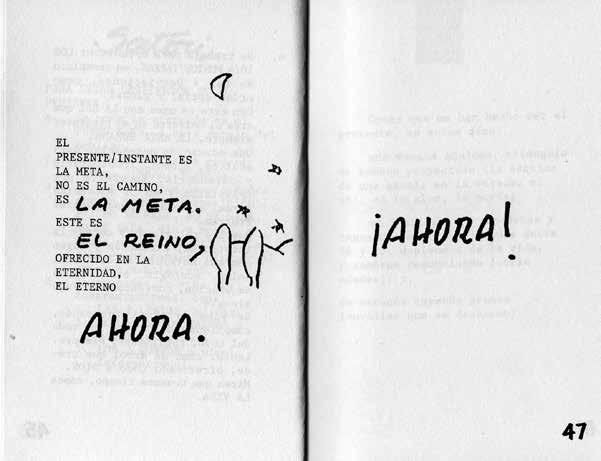 EL
PRESENTE/INSTANTE ES
LA META,
NO ES EL CAMINO,
ES LA META.
ESTE ES
EL REINO,
OFRECIDO EN LA
ETERNIDAD,
EL ETERNO
AHORA.
¡AHORA!
47